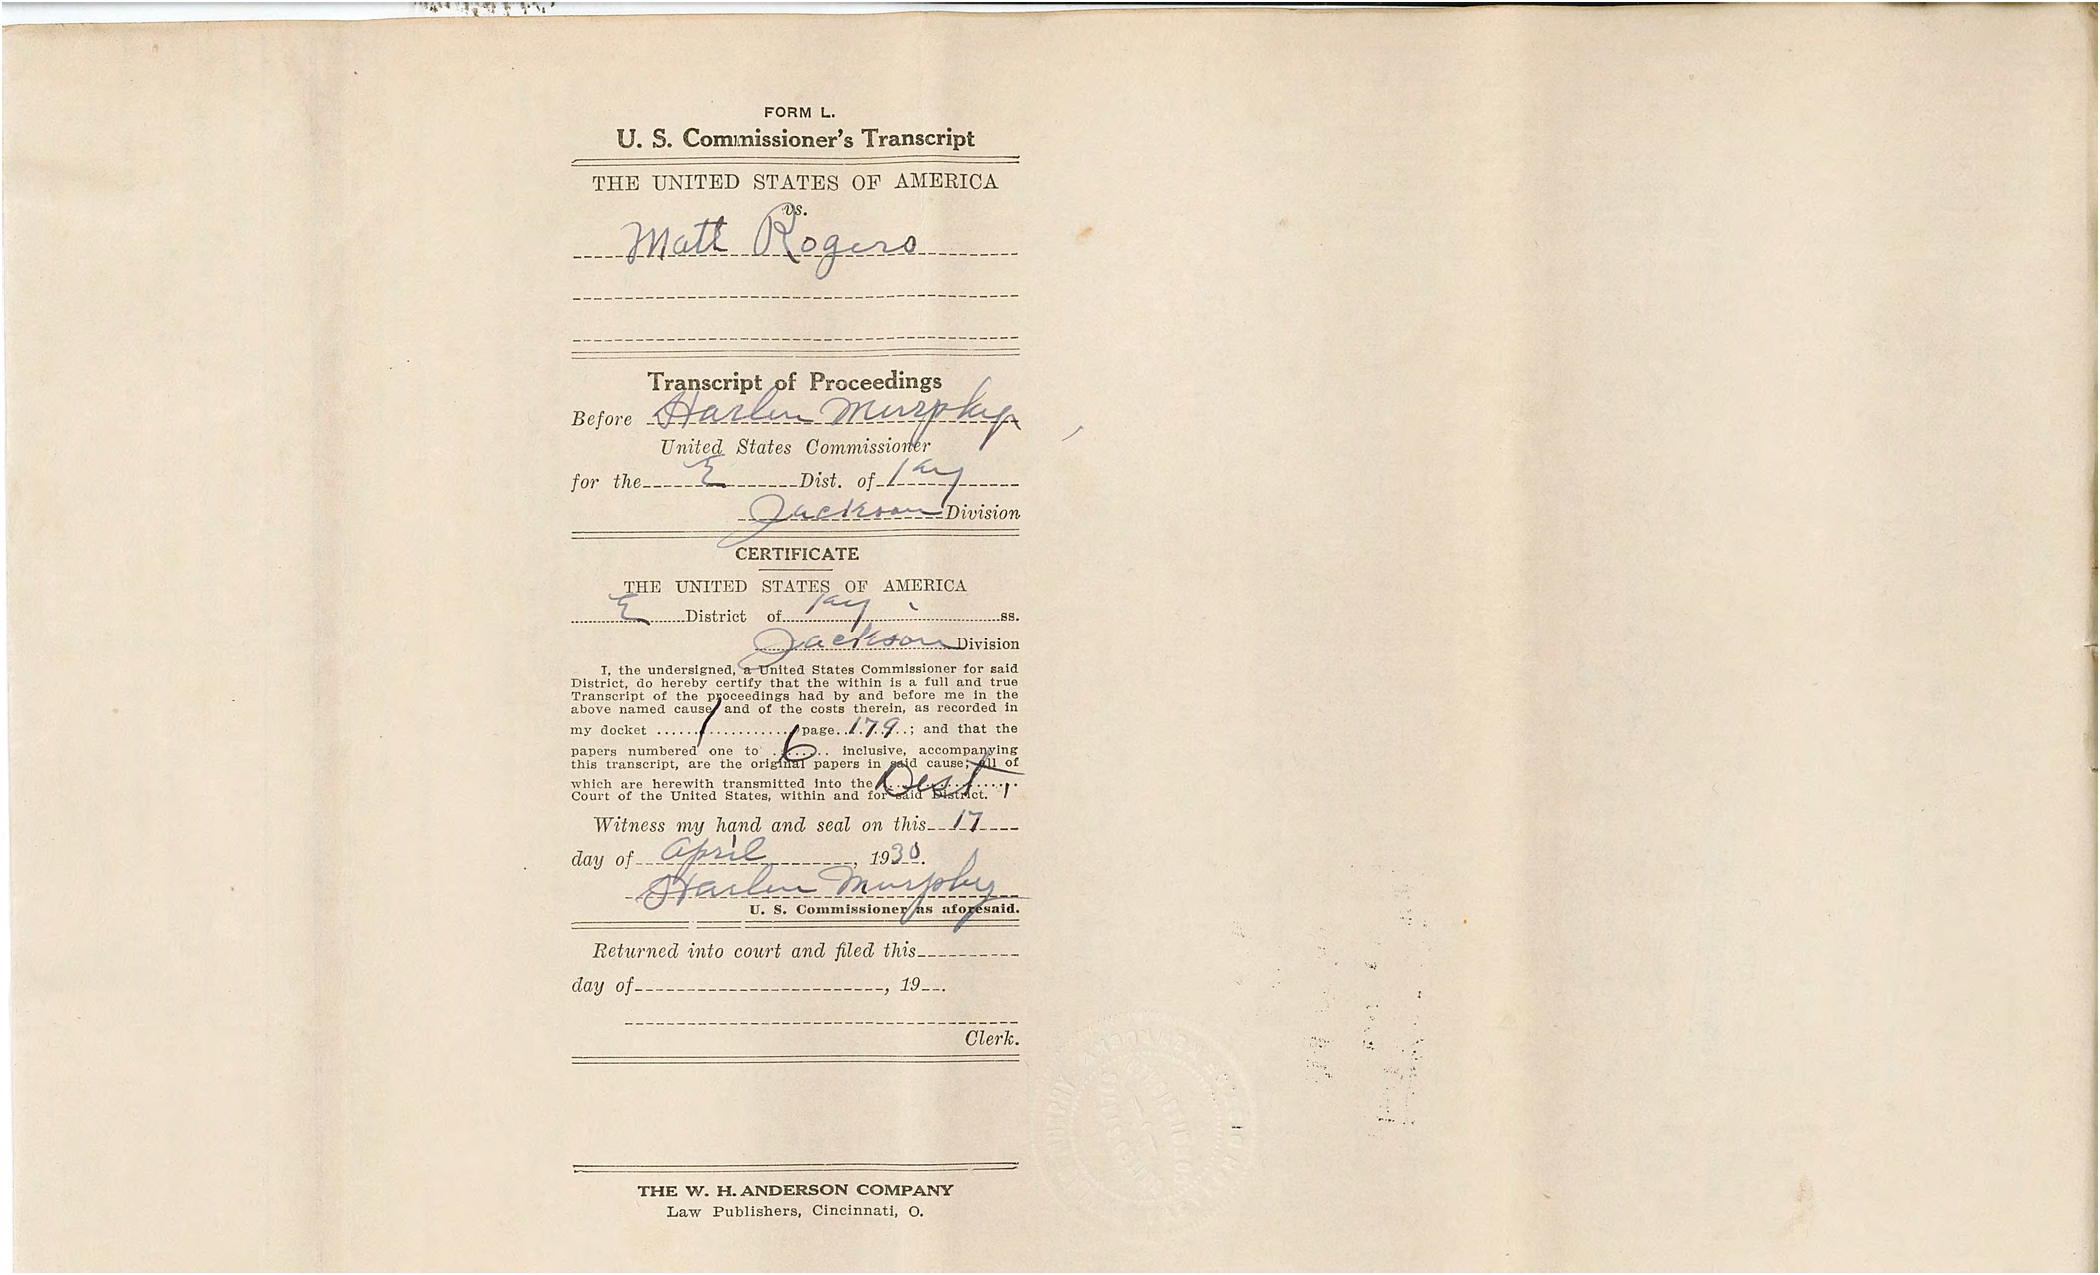 FORM L.
U. S. Commissioner's Transcript
THE UNITED STATES OF AMERICA
vs.
Matt Rogers
Transcript of Proceedings
Before Harlen Murphy
United States Commissioner
for the E Dist. of Ky
Jackson Division
CERTIFICATE
THE UNITED STATES OF AMERICA
E District of Ky ss.
Jackson Division
I, the undersigned, a United States Commissioner for said
District, do hereby certify that the within is a full and true
Transcript of the proceedings had by and before me in the
above named cause, and of the costs therein, as recorded in
my docket 1 page 179; and that the
papers numbered one to 6 inclusive, accompanying
this transcript, are the original papers in said cause; all of
which are herewith transmitted into the Dist.
Court of the United States, within and for said District.
Witness my hand and seal on this 17
day of April, 1930.
Harlen Murphy
U. S. Commissioner as aforesaid.
Returned into court and filed this
day of , 19 .
Clerk.
THE W. H. ANDERSON COMPANY
Law Publishers, Cincinnati, O.